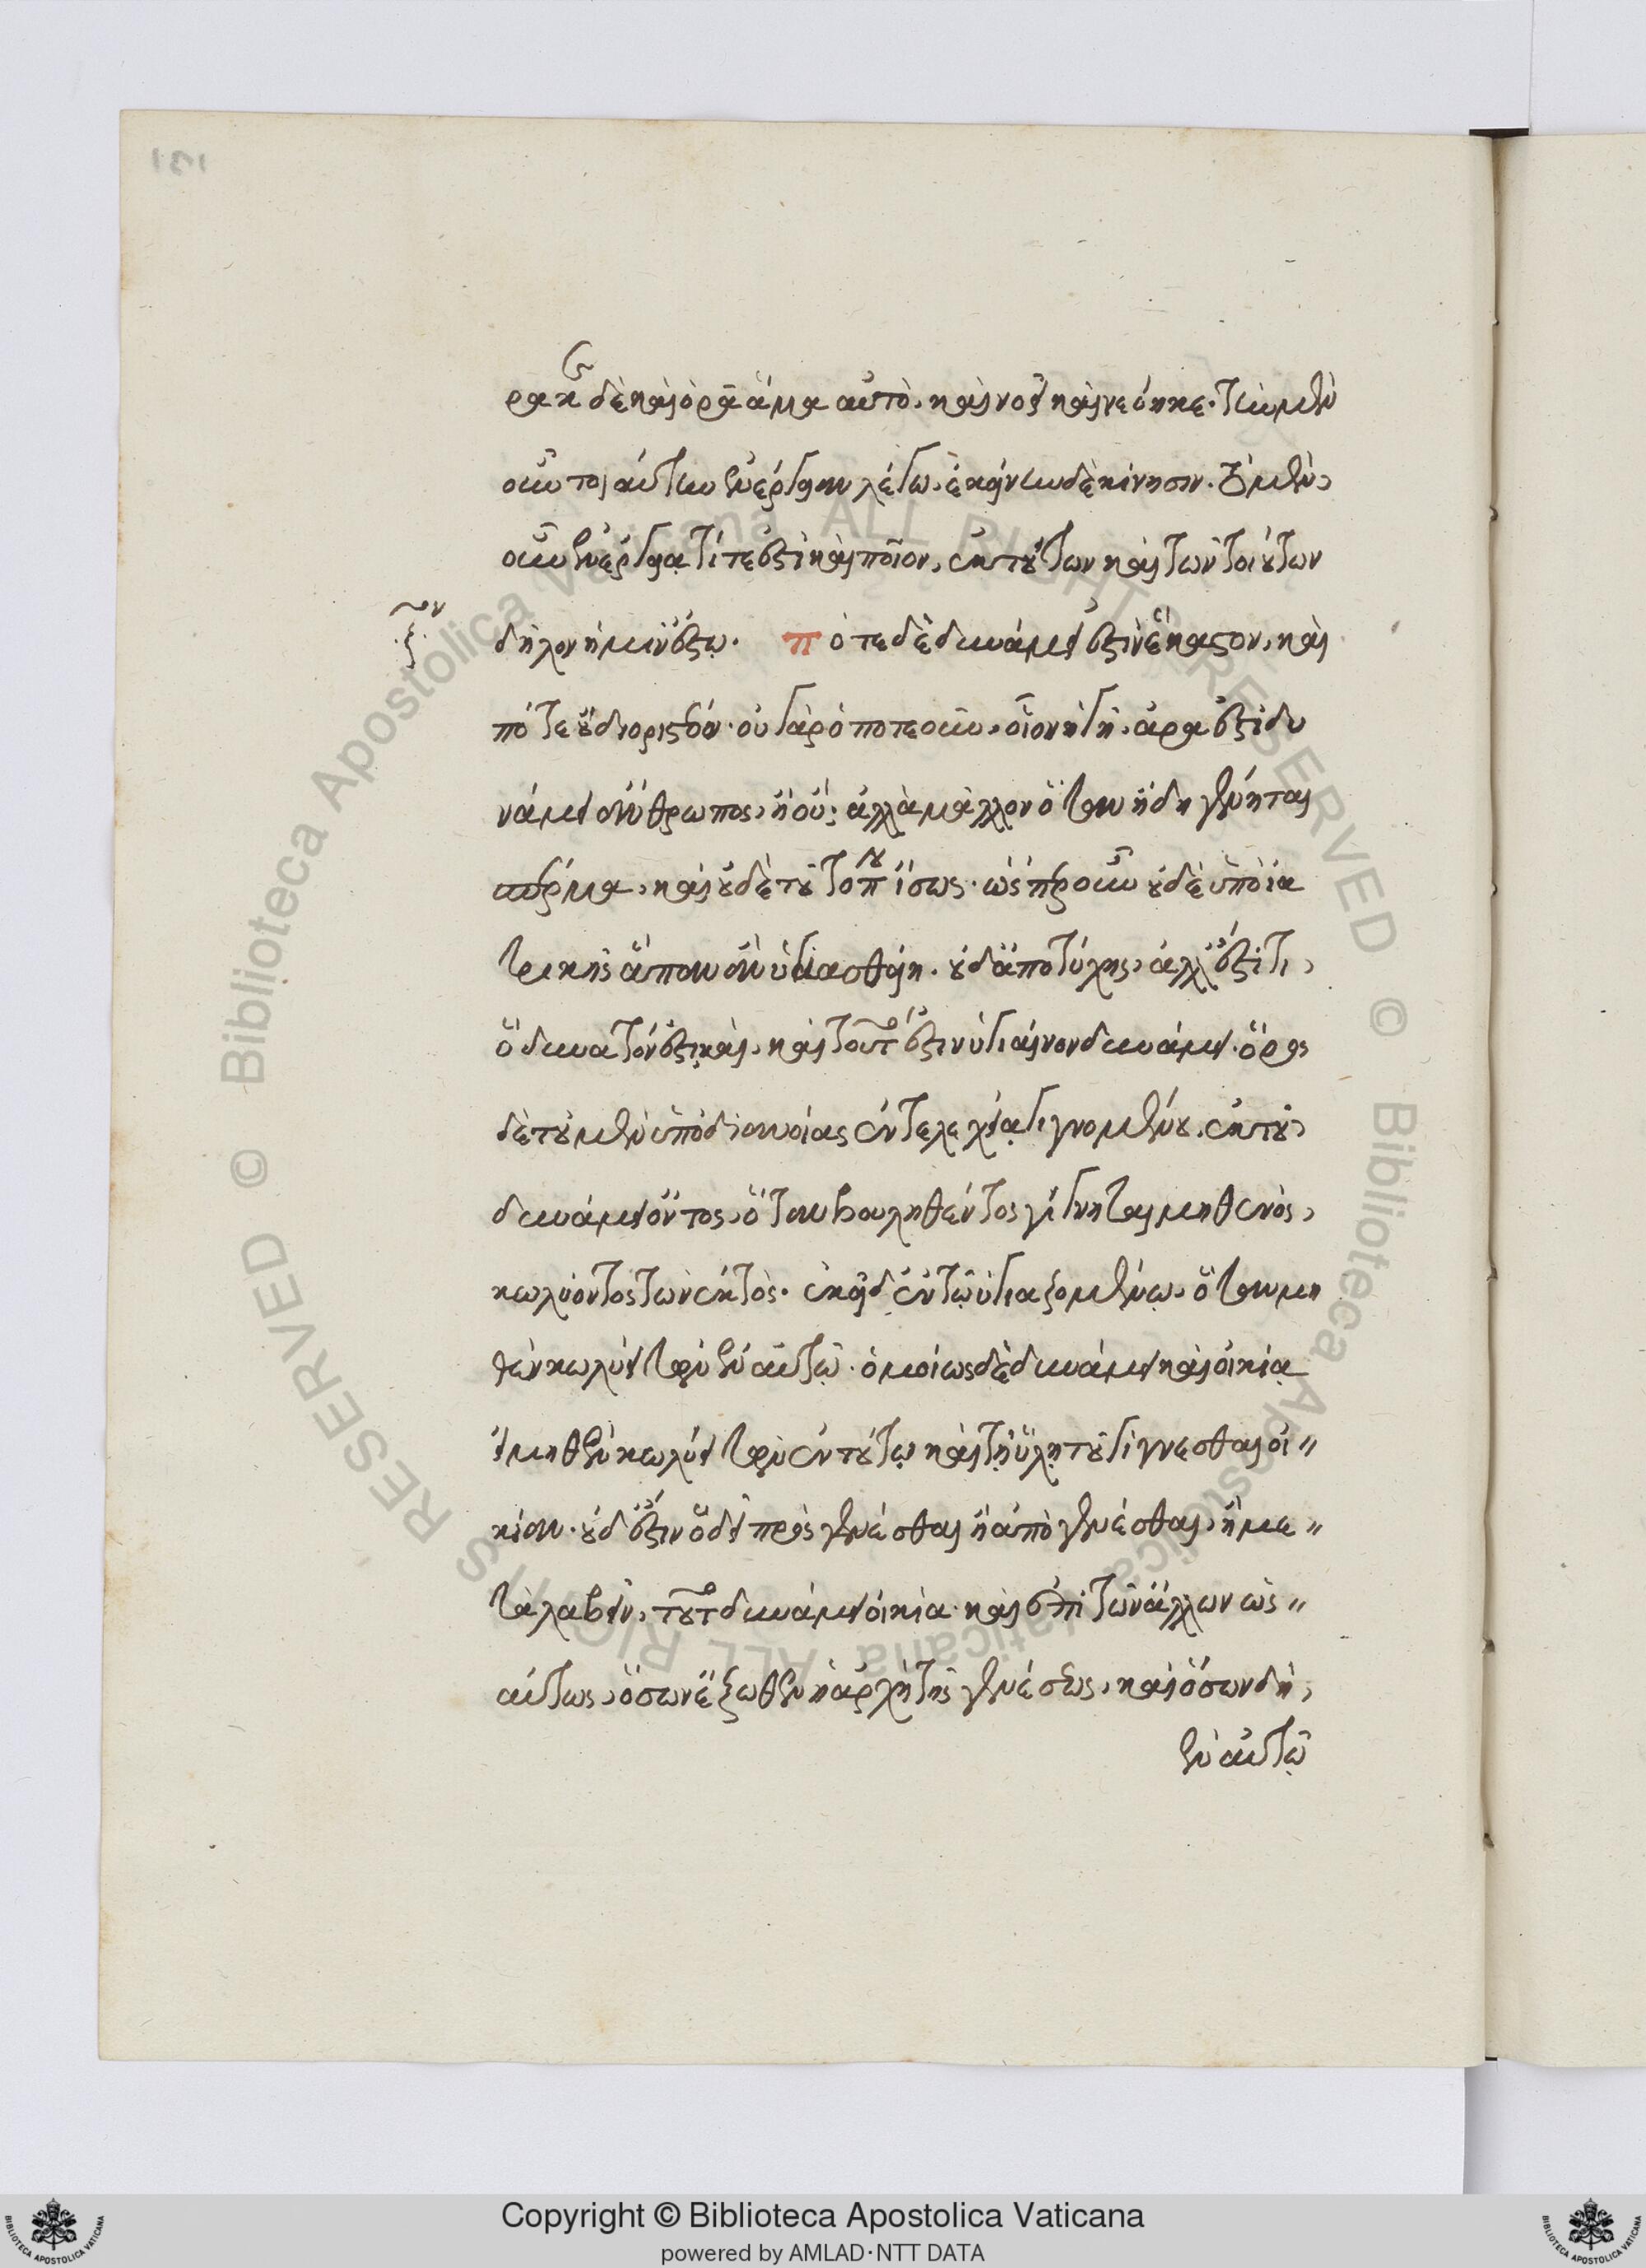 ρακε δὲ καὶ ὁρᾷ ἅμα αὐτὸ, καὶ νοεῖ καὶ νενόηκε. τὴν μὲν
οὖν τοιαύτην ἐνέργειαν λέγω, ἐκείνην δὲ κίνησιν. τὸ μὲν
οὖν ἐνεργείᾳ τί τέ ἐστι καὶ ποῖον, ἐκ τούτων καὶ τῶν τοιούτων
δῆλον ἡμῖν ἔστω. πότε δὲ δυνάμει ἐστὶν ἕκαστον, καὶ
πότε οὒ διοριστέον. οὐ γὰρ ὁποτεοῦν, οἷον ἡ γῆ, ἆρα ἐστὶ δυ
νάμει ἄνθρωπος, ἢ οὔ; ἀλλὰ μᾶλλον ὅταν ἤδη γένηται
σπέρμα, καὶ οὐδὲ τοῦτό που ἴσως. ὥσπερ οὖν οὐδὲ ὑπὸ ἰα
τρικῆς ἅπαν ἂν ὑγιασθείη. οὐδ' ἀπὸ τύχης, ἀλλ' ἔστι τι
ὃ δυνατόν ἐστι καὶ, καὶ τοῦτ' ἔστιν ὑγιαῖνον δυνάμει. ὅρος
δὲ τοῦ μὲν ὑπὸ διανοίας ἐντελεχείᾳ γιγνομένου, ἐκ τοῦ
δυνάμει ὄντος, ὅταν βουληθέντος γίγνηται μηθενὸς
κωλύοντος τῶν ἐκτὸς. ἐκεῖ δ' ἐν τῷ ὑγιαζομένῳ, ὅταν μη
θὲν κωλύει τῶν ἐν αὐτῷ. ὁμοίως δὲ δυνάμει καὶ οἰκία
εἰ μηθὲν κωλύει τῶν ἐν τούτῳ καὶ τῇ ὕλῃ τοῦ γίγνεσθαι οἰ〃
κίαν. οὐδ' ἔστιν ὃ δεῖ προσγενέσθαι ἢ ἀπογενέσθαι, ἢ με〃
ταλαβεῖν, τοῦτο δυνάμει οἰκία. καὶ ἐπὶ τῶν ἄλλων ὡς〃
αύτως, ὅσων ἔξωθεν ἡ ἀρχὴ τῆς γενέσεως, καὶ ὅσων δὴ
ἐν αὐτῷ
Copyright © Biblioteca Apostolica Vaticana
powered by AMLAD·NTT DATA